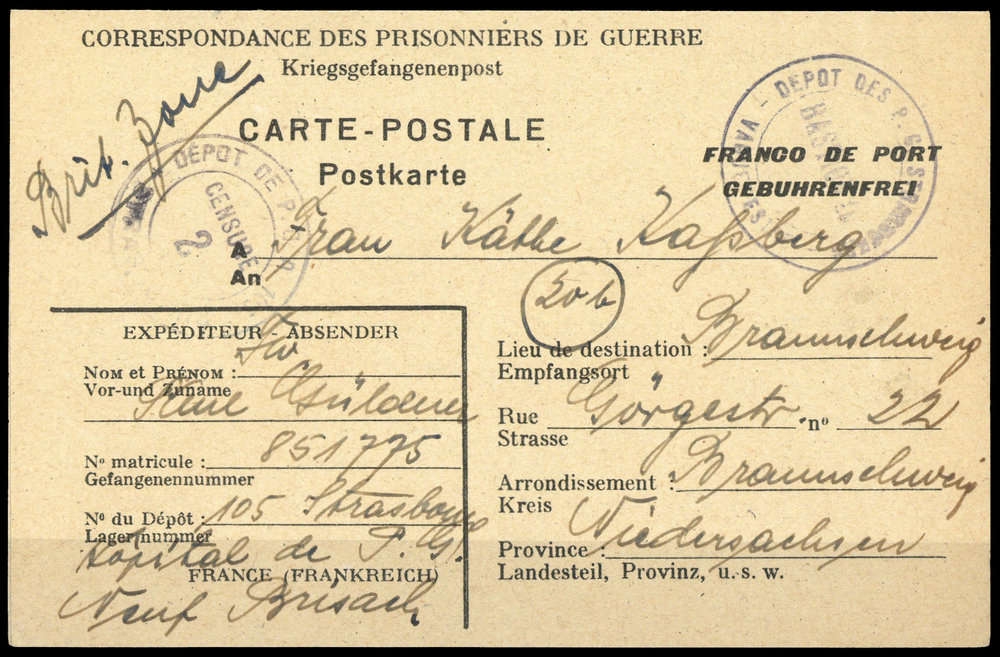 CORRESPONDANCE DES PRISONNIERS DE GUERRE
Kriegsgefangenenpost
Brit. Zone
CARTE-POSTALE
Postkarte
FRANCO DE PORT
GEBUHRENFREI
DÉPOT DE P.G.
CENSURE
2
DEPOT DES P.G. STRASBOURG
A Frau Käthe Kaßberg
An
20b
EXPÉDITEUR - ABSENDER
NOM et PRÉNOM :
Vor-und Zuname
Karl Güldener
Nº matricule : 851775
Gefangenennummer
Nº du Dépôt : 105 Strasbourg
Lagernummer
Hôpital de P. G.
FRANCE (FRANKREICH)
Neuf Brisach
Lieu de destination : Braunschweig
Empfangsort
Rue Görgestr nº 22
Strasse
Arrondissement : Braunschweig
Kreis
Province : Niedersachsen
Landesteil, Provinz, u.s.w.